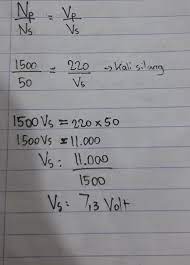 Np/Ns = Vp/Vs
1500/50 = 220/Vs → Kali silang
1500 Vs = 220 x 50
1500 Vs = 11.000
Vs : 11.000/1500
Vs : 7,3 Volt